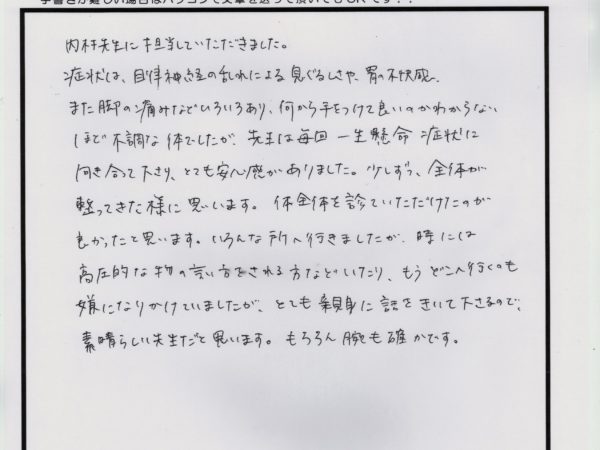 手書きが難しい場合はパソコンで文章を送って頂いてもOKです！！
内村先生に担当していただきました。
症状は、自律神経の乱れによる息ぐるしさや、胃の不快感、
また脚の痛みなどいろいろあり、何から手をつけて良いのかわからない
ほど不調な体でしたが、先生は毎回一生懸命症状に
向き合って下さり、とても安心感がありました。少しずつ、全体が
整ってきた様に思います。体全体を診ていただけたのが
良かったと思います。いろんな所へ行きましたが、時には
高圧的な物の言い方をされる方などいたり、もうどこへ行くのも
嫌になりかけていましたが、とても親身に話をきいて下さるので、
素晴らしい先生だと思います。もちろん腕も確かです。